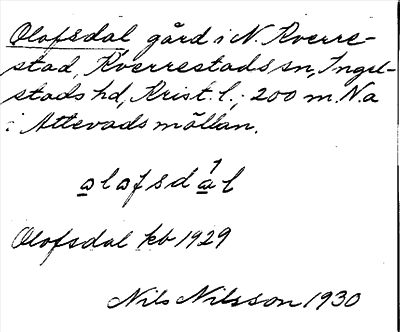 Olofsdal gård i N. Kverre-
stad, Kverrestads sn, Ingel-
stads hd, Krist. l., 200 m. N. a
i Attevads möllan.
olofsdal
Olofsdal kb 1929
Nils Nilsson 1930